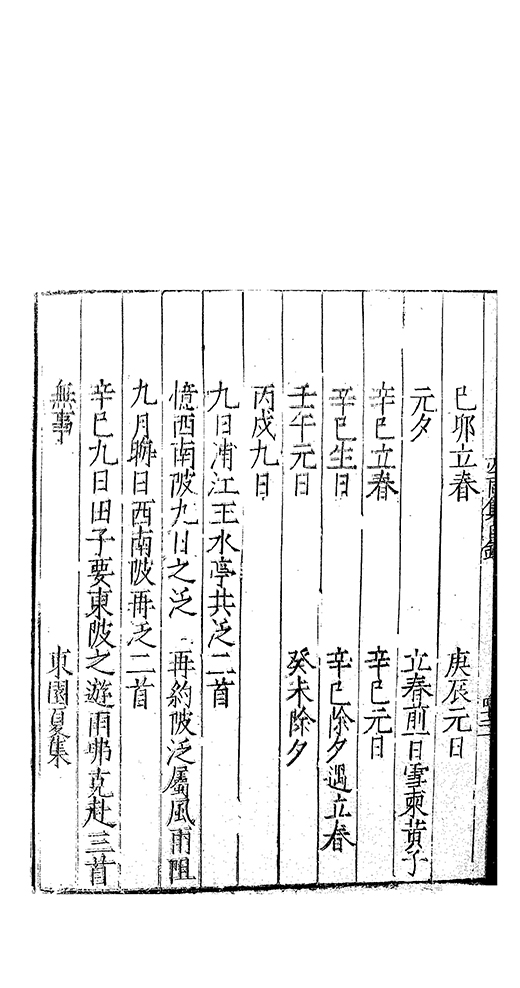 己卯立春　庚辰元日
元夕　立春前一日雪柬黃子
辛巳立春　辛巳元日
辛巳生日　辛巳除夕遇立春
壬午元日　癸未除夕
丙戌九日
九日浦江王水亭共泛二首
憶西南陂九日之泛　再約陂泛屬風雨阻
九月晦日西南陂再泛二首
辛巳九日田子要東陂之遊雨弗克赴三首
無事　東園夏集